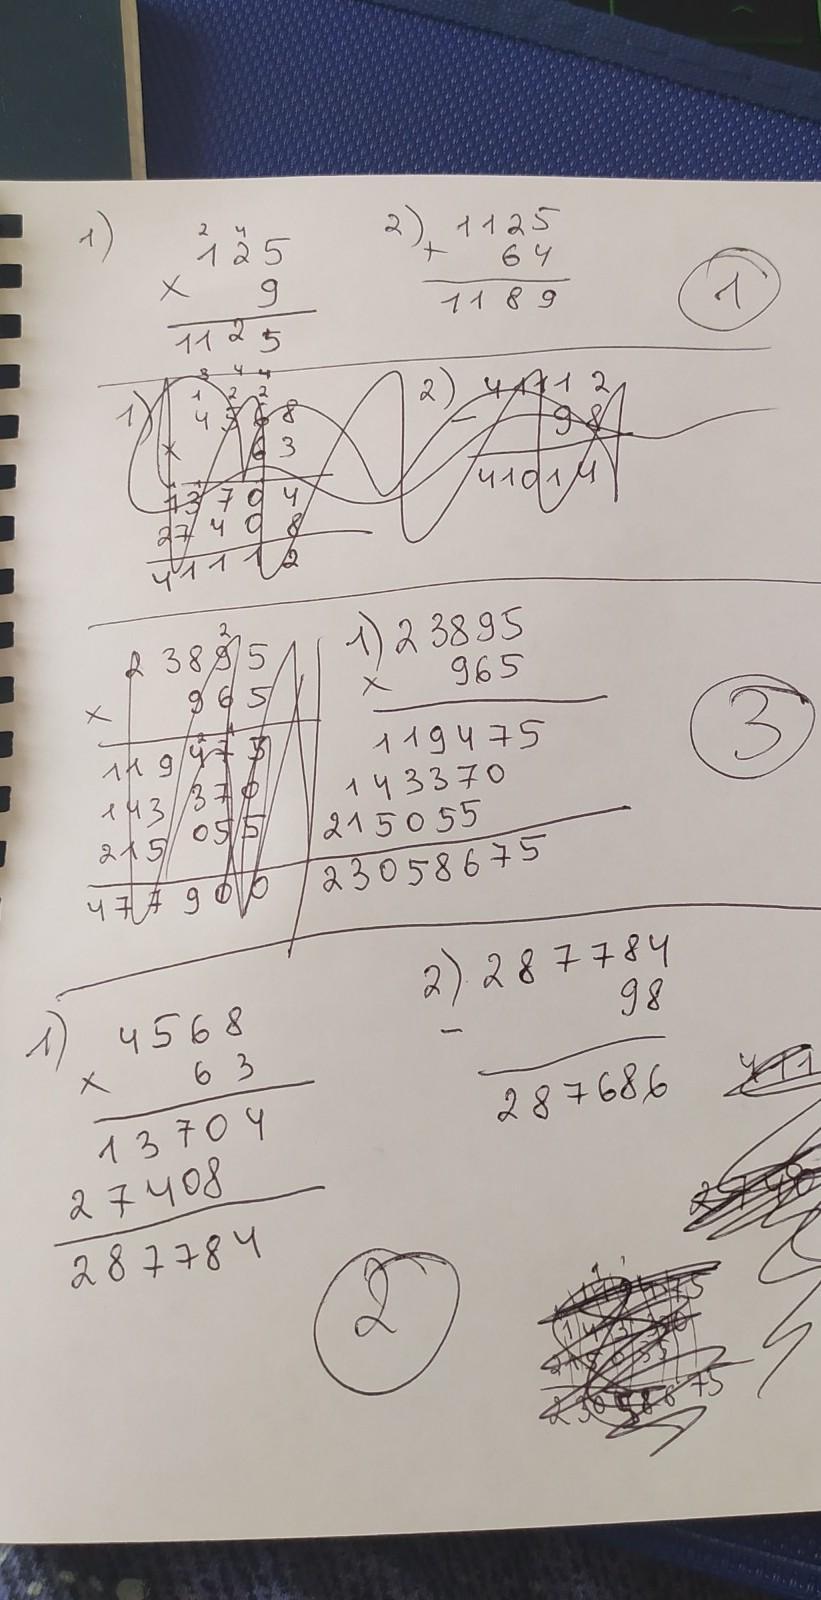 1) 2 4
125
× 9
1125
2) 1125
+ 64
1189
1
3 4 4
1 2 2
1) 4568
× 63
13704
27408
41112
2) 41112
- 98
41014
2
23895
× 965
119475
143370
215055
477900
1) 23895
× 965
119475
143370
215055
23058675
3
1) 4568
× 63
13704
27408
287784
2) 287784
- 98
287686
411
2740
2